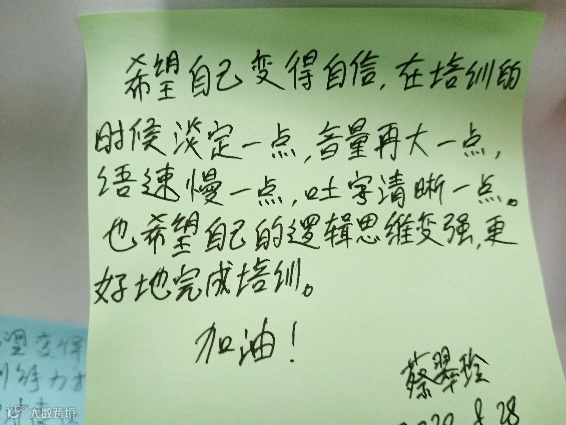 希望自己变得自信，在培训的
时候淡定一点，音量再大一点，
语速慢一点，吐字清晰一点。
也希望自己的逻辑思维变强，更
好地完成培训。
加油！
蔡翠玲
2020.8.28
变得
力
大数跨境